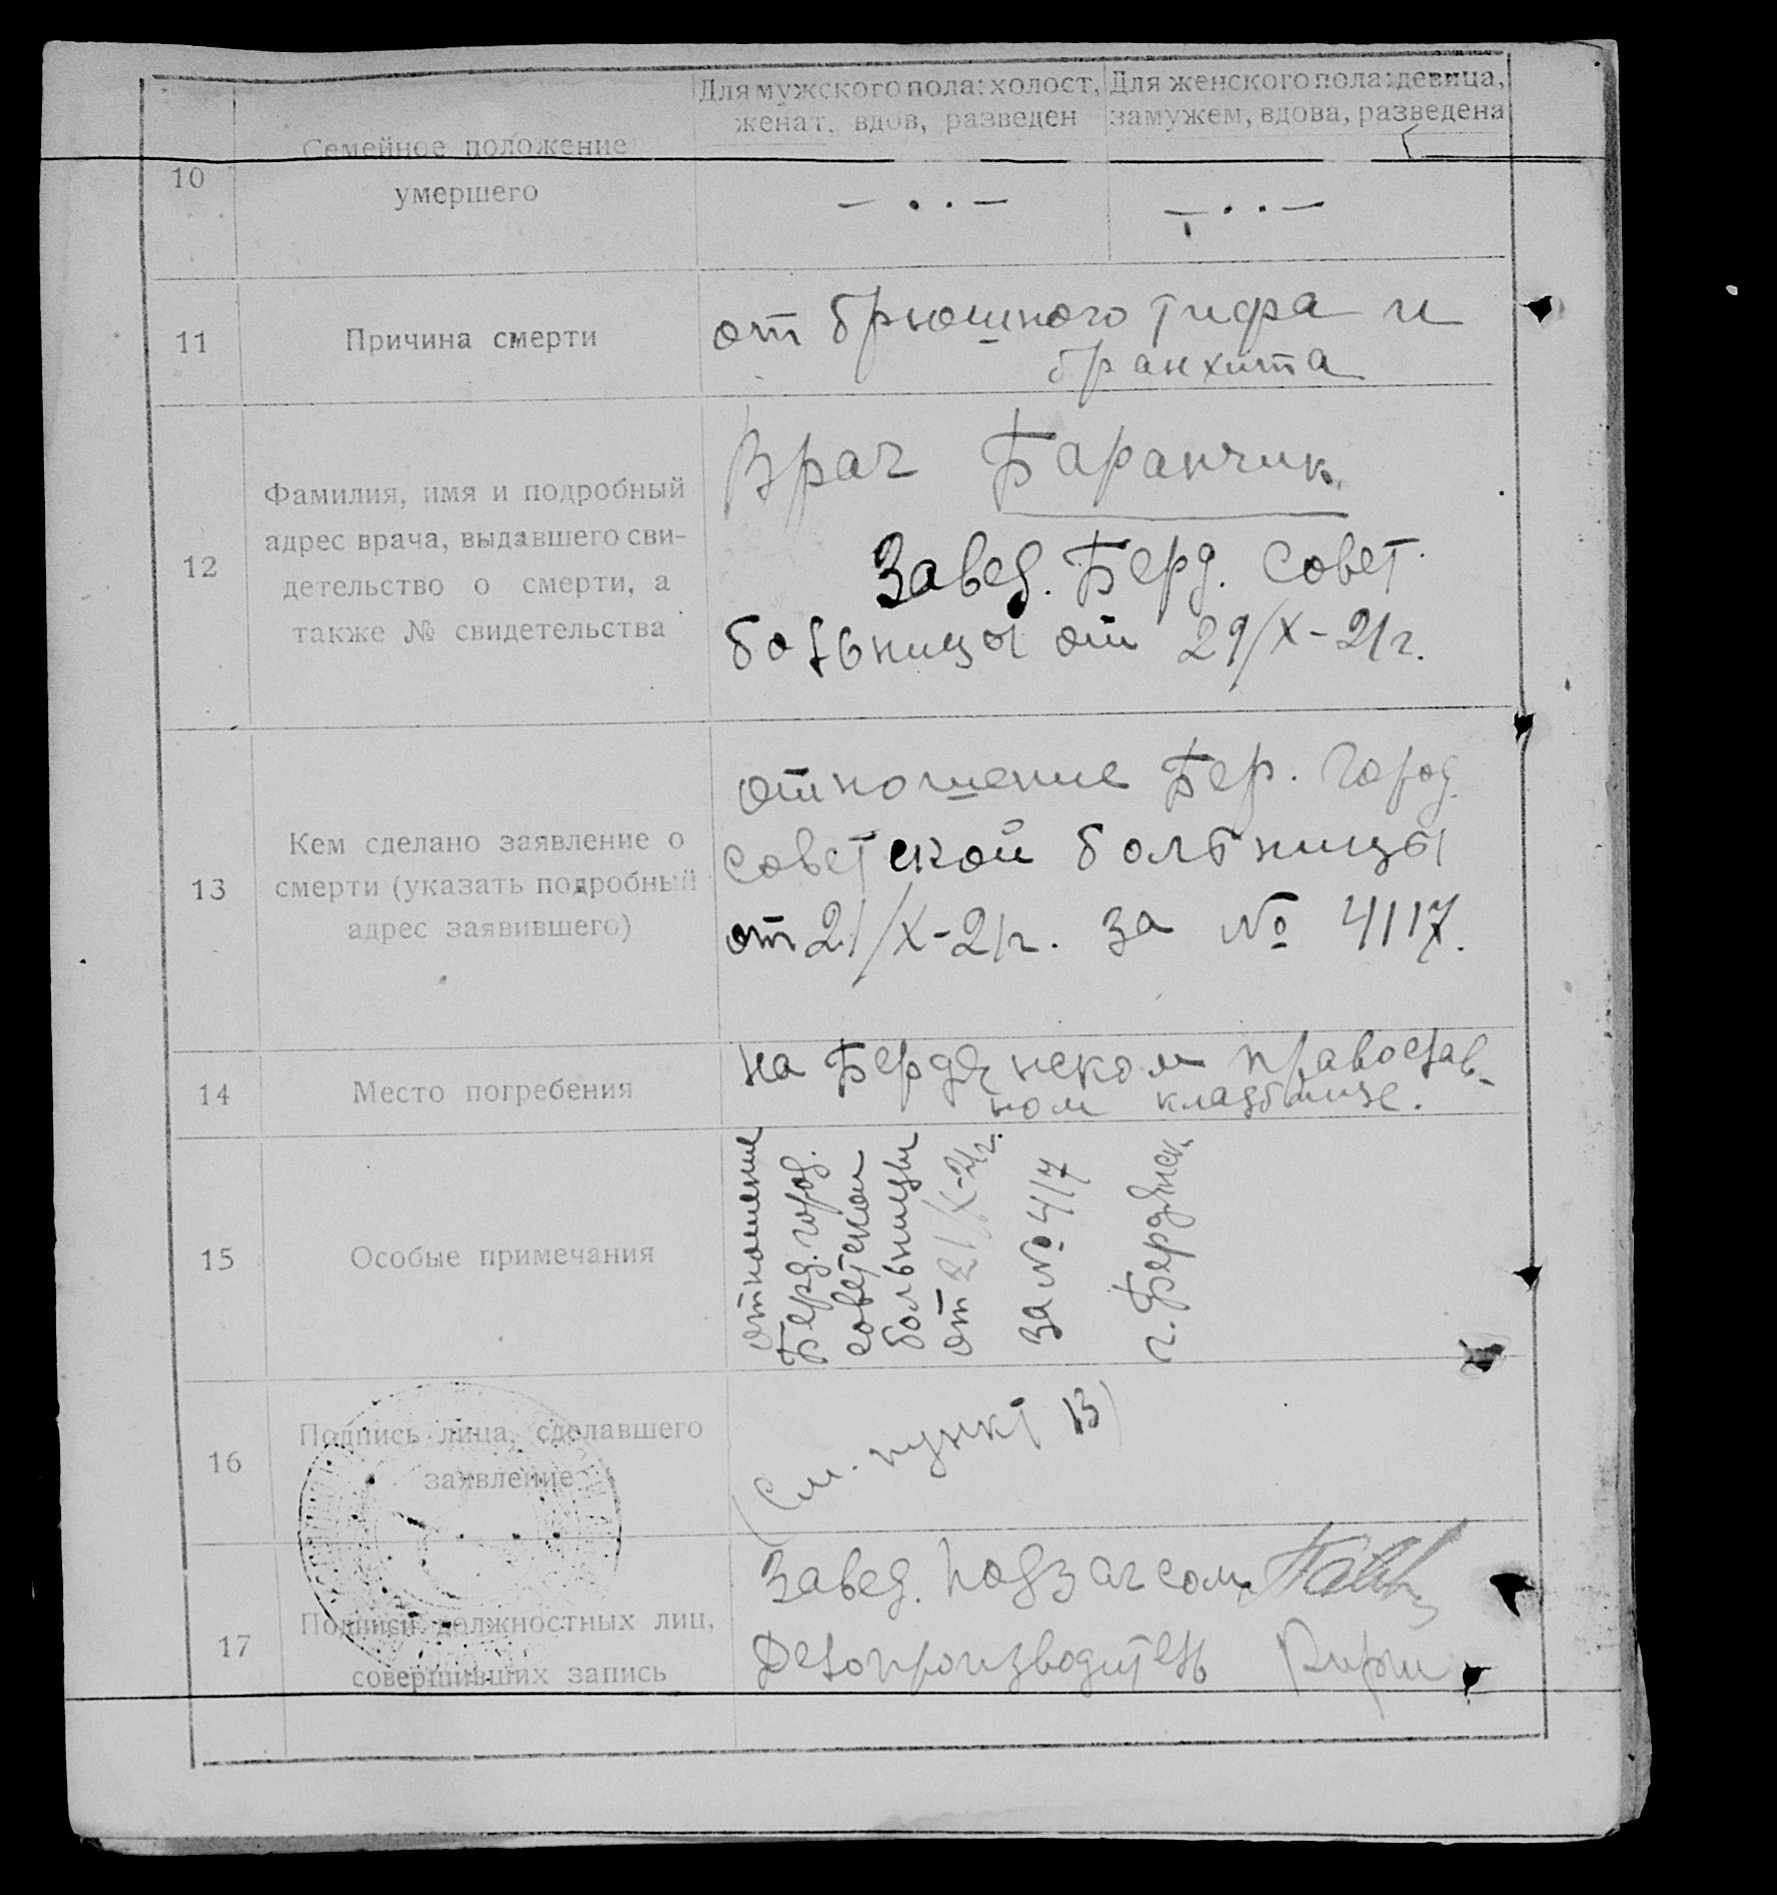 Для мужского пола: холост, женат, вдов, разведен
Для женского пола: девица, замужем, вдова, разведена
10
Семейное положение
умершего
— . . —
— . . —
11
Причина смерти
от брюшного тифа и
бранхита
12
Фамилия, имя и подробный
адрес врача, выдавшего сви-
детельство о смерти, а
также № свидетельства
Врач Баранчик
Завед. Берд. Совет.
больницы от 29/X-21г.
13
Кем сделано заявление о
смерти (указать подробный
адрес заявившего)
отношение Бер. Город.
советской больницы
от 21/X-21г. за № 4117.
14
Место погребения
на Бердянском православ-
ном кладбище.
15
Особые примечания
отношение
Берд. город.
советской
больницы
от 21/X-21г.
за № 4117
г. Бердянск
16
Подпись лица, сделавшего
заявление
(См. пункт 13)
17
Подписи должностных лиц,
совершивших запись
Завед. подзагсом
Делопроизводитель